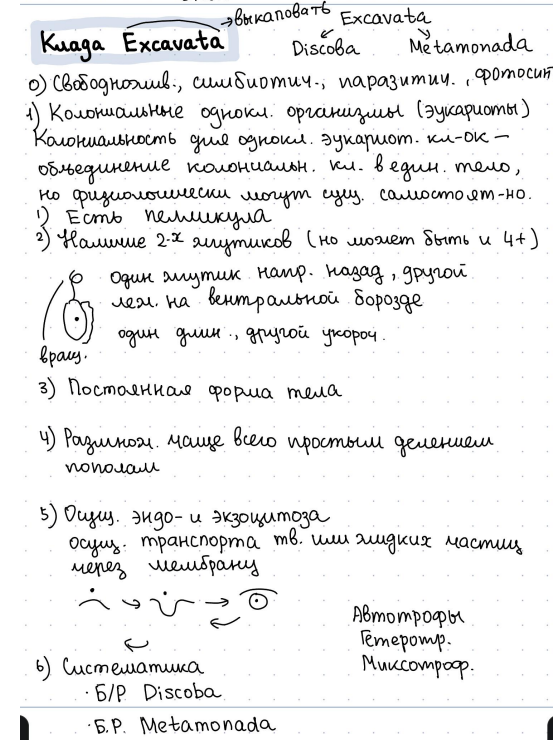 Клада Excavata → выкаповать Excavata
Discoba Metamonada
0) Свободножив., симбиотич., паразитич., фотосинт
1) Колониальные однокл. организмы (эукариоты)
Колониальность для однокл. эукариот. кл-ок –
объединение колониальн. кл. в един. тело,
но физиологически могут сущ. самостоят-но.
1) Есть пелликула
2) Наличие 2-х жгутиков (но может быть и 4+)
один жгутик напр. назад, другой
леж. на вентральной борозде
один длин., другой укороч.
вращ.
3) Постоянная форма тела
4) Размнож. чаще всего простым делением
пополам
5) Осущ. эндо- и экзоцитоза
осущ. транспорта тв. или жидких частиц
через мембрану
Автотрофы
Гетеротр.
Миксотроф.
6) Систематика
· Б/Р Discoba
· Б.Р. Metamonada